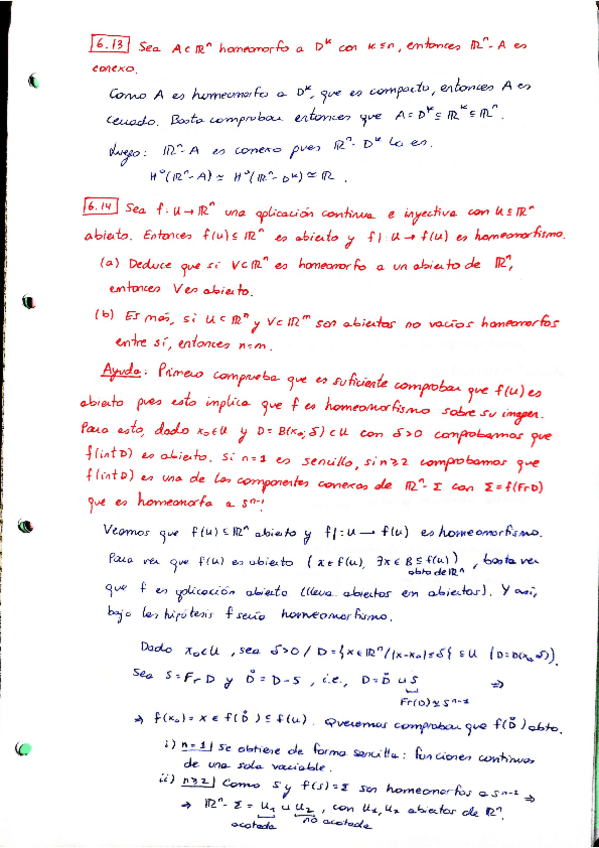 6.13 Sea A ⊂ ℝⁿ homeomorfo a Dᵏ con k ≤ n, entonces ℝⁿ - A es
conexo.
Como A es homeomorfo a Dᵏ, que es compacto, entonces A es
cerrado. Basta comprobar entonces que A = Dᵏ ⊆ ℝᵏ ⊆ ℝⁿ.
Luego: ℝⁿ - A es conexo pues ℝⁿ - Dᵏ lo es.
H⁰(ℝⁿ - A) ≃ H⁰(ℝⁿ - Dᵏ) ≃ ℝ.
6.14 Sea f: U → ℝⁿ una aplicación continua e inyectiva con U ⊆ ℝⁿ
abierto. Entonces f(U) ⊆ ℝⁿ es abierto y f|: U → f(U) es homeomorfismo.
(a) Deduce que si V ⊂ ℝⁿ es homeomorfo a un abierto de ℝⁿ,
entonces V es abierto.
(b) Es más, si U ⊂ ℝⁿ y V ⊂ ℝᵐ son abiertos no vacíos homeomorfos
entre sí, entonces n=m.
Ayuda: Primero comprueba que es suficiente comprobar que f(U) es
abierto pues esto implica que f es homeomorfismo sobre su imagen.
Para esto, dado x₀ ∈ U y D = B(x₀; δ) ⊂ U con δ>0 comprobamos que
f(int D) es abierto. Si n=1 es sencillo, si n≥2 comprobamos que
f(int D) es una de las componentes conexas de ℝⁿ - Σ con Σ = f(Fr D)
que es homeomorfa a Sⁿ⁻¹
Veamos que f(U) ⊆ ℝⁿ abierto y f|: U → f(U) es homeomorfismo.
Para ver que f(U) es abierto (x ∈ f(U), ∃x ∈ B ⊆ f(U)), basta ver
abto de ℝⁿ
que f es aplicación abierta (lleva abiertos em abiertos). Y así,
bajo las hipótesis f sería homeomorfismo.
Dado x₀ ∈ U, sea δ>0 / D = {x ∈ ℝⁿ / |x-x₀| ≤ δ} ⊆ U (D = D(x₀, δ)).
Sea S = Fr D y D̊ = D - S, i.e., D = D̊ ∪ S ⇒
Fr(D) ≃ Sⁿ⁻¹
⇒ f(x₀) = x ∈ f(D̊) ⊆ f(U). Queremos comprobar que f(D̊) abto.
i) n=1 Se obtiene de forma sencilla: funciones continuas
de una sola variable.
ii) n≥2 Como S y f(S) = Σ son homeomorfos a Sⁿ⁻¹ ⇒
⇒ ℝⁿ - Σ = U₁ ∪ U₂, con U₁, U₂ abiertos de ℝⁿ.
acotada no acotada